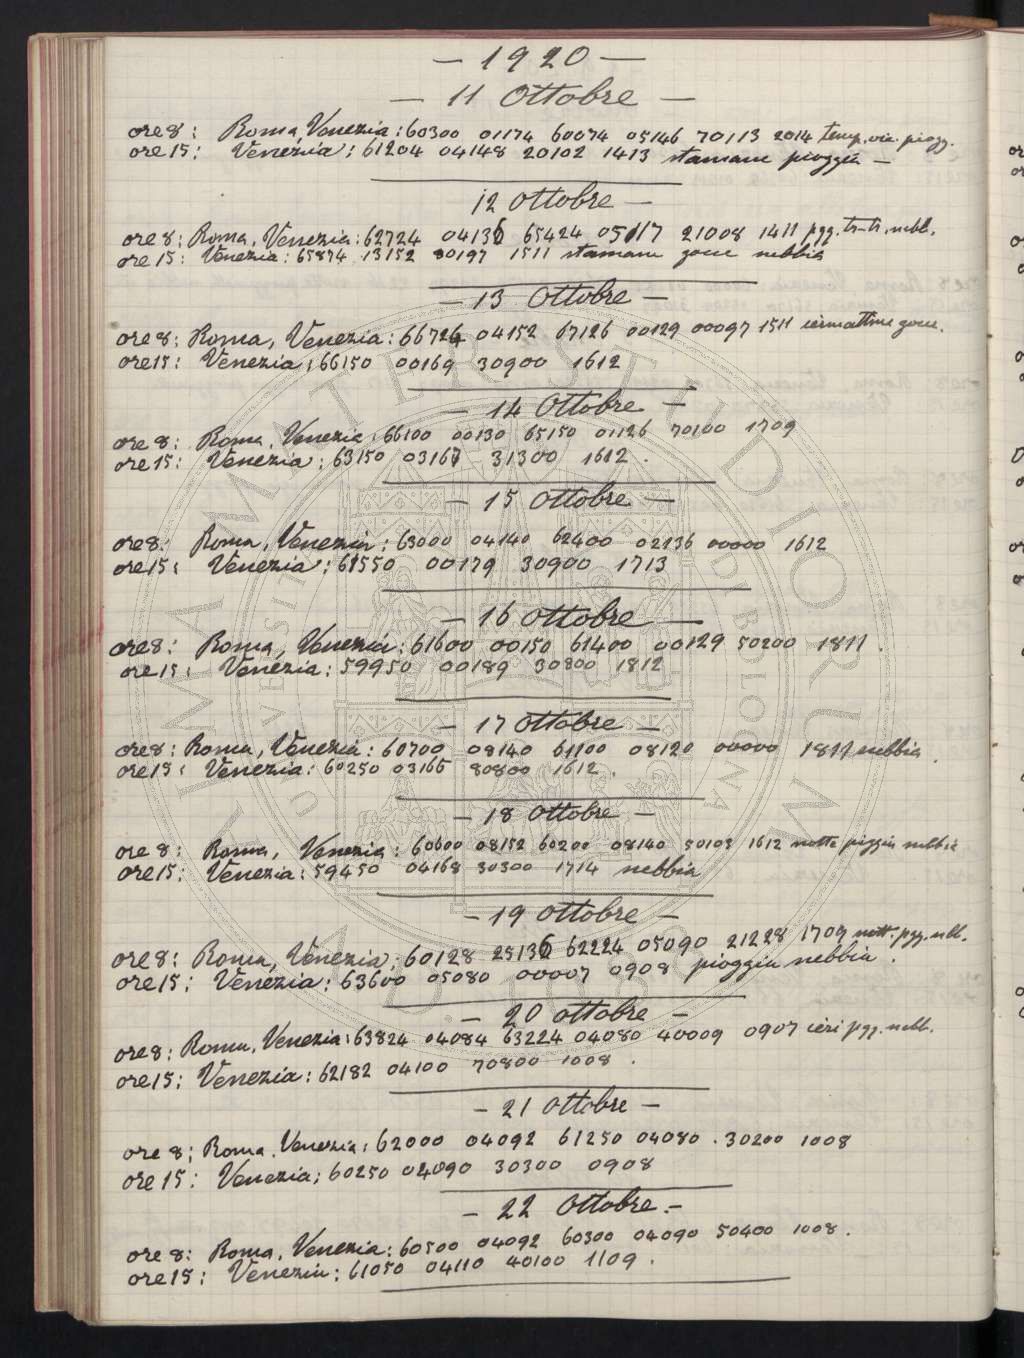 — 1920 —
— 11 Ottobre —
ore 8: Roma, Venezia: 60300 01174 60074 05146 70113 2014 temp. vic. piogg.
ore 15: Venezia: 61204 04148 20102 1413 stamane pioggia —
12 Ottobre —
ore 8: Roma, Venezia: 62724 04136 65424 05117 21008 1411 pgg. tr-tr. nebb.
ore 15: Venezia: 65874 13152 80197 1511 stamane gocce nebbia
— 13 Ottobre —
ore 8: Roma, Venezia: 66726 04152 67126 00129 00097 1511 iermattina gocce.
ore 15: Venezia: 66150 00169 30900 1612
— 14 Ottobre —
ore 8: Roma, Venezia: 66100 00130 65150 01126 70100 1709
ore 15: Venezia: 63150 03167 31300 1612.
— 15 Ottobre —
ore 8: Roma, Venezia: 63000 04140 62400 02136 00000 1612
ore 15: Venezia: 61550 00179 30900 1713
— 16 Ottobre —
ore 8: Roma, Venezia: 61600 00150 61400 00129 50200 1811.
ore 15: Venezia: 59950 00189 30800 1812
— 17 Ottobre —
ore 8: Roma, Venezia: 60700 08140 61100 08120 00000 1811 nebbia.
ore 15: Venezia: 60250 03165 80800 1612.
— 18 Ottobre —
ore 8: Roma, Venezia: 60600 08152 60200 08140 50103 1612 notte pioggia nebbia
ore 15: Venezia: 59450 04168 30300 1714 nebbia
— 19 Ottobre —
ore 8: Roma, Venezia: 60128 25136 62224 05090 21228 1709 nott. pgg. nebb.
ore 15: Venezia: 63600 05080 00007 0908 pioggia nebbia.
— 20 Ottobre —
ore 8: Roma, Venezia: 63824 04084 63224 04080 40009 0907 ieri pgg. nebb.
ore 15: Venezia: 62182 04100 70800 1008.
— 21 Ottobre —
ore 8: Roma, Venezia: 62000 04092 61250 04080. 30200 1008
ore 15: Venezia: 60250 04090 30300 0908
— 22 Ottobre. —
ore 8: Roma, Venezia: 60500 04092 60300 04090 50400 1008.
ore 15: Venezia: 61050 04110 40100 1109.
ALMA MATER STUDIORUM